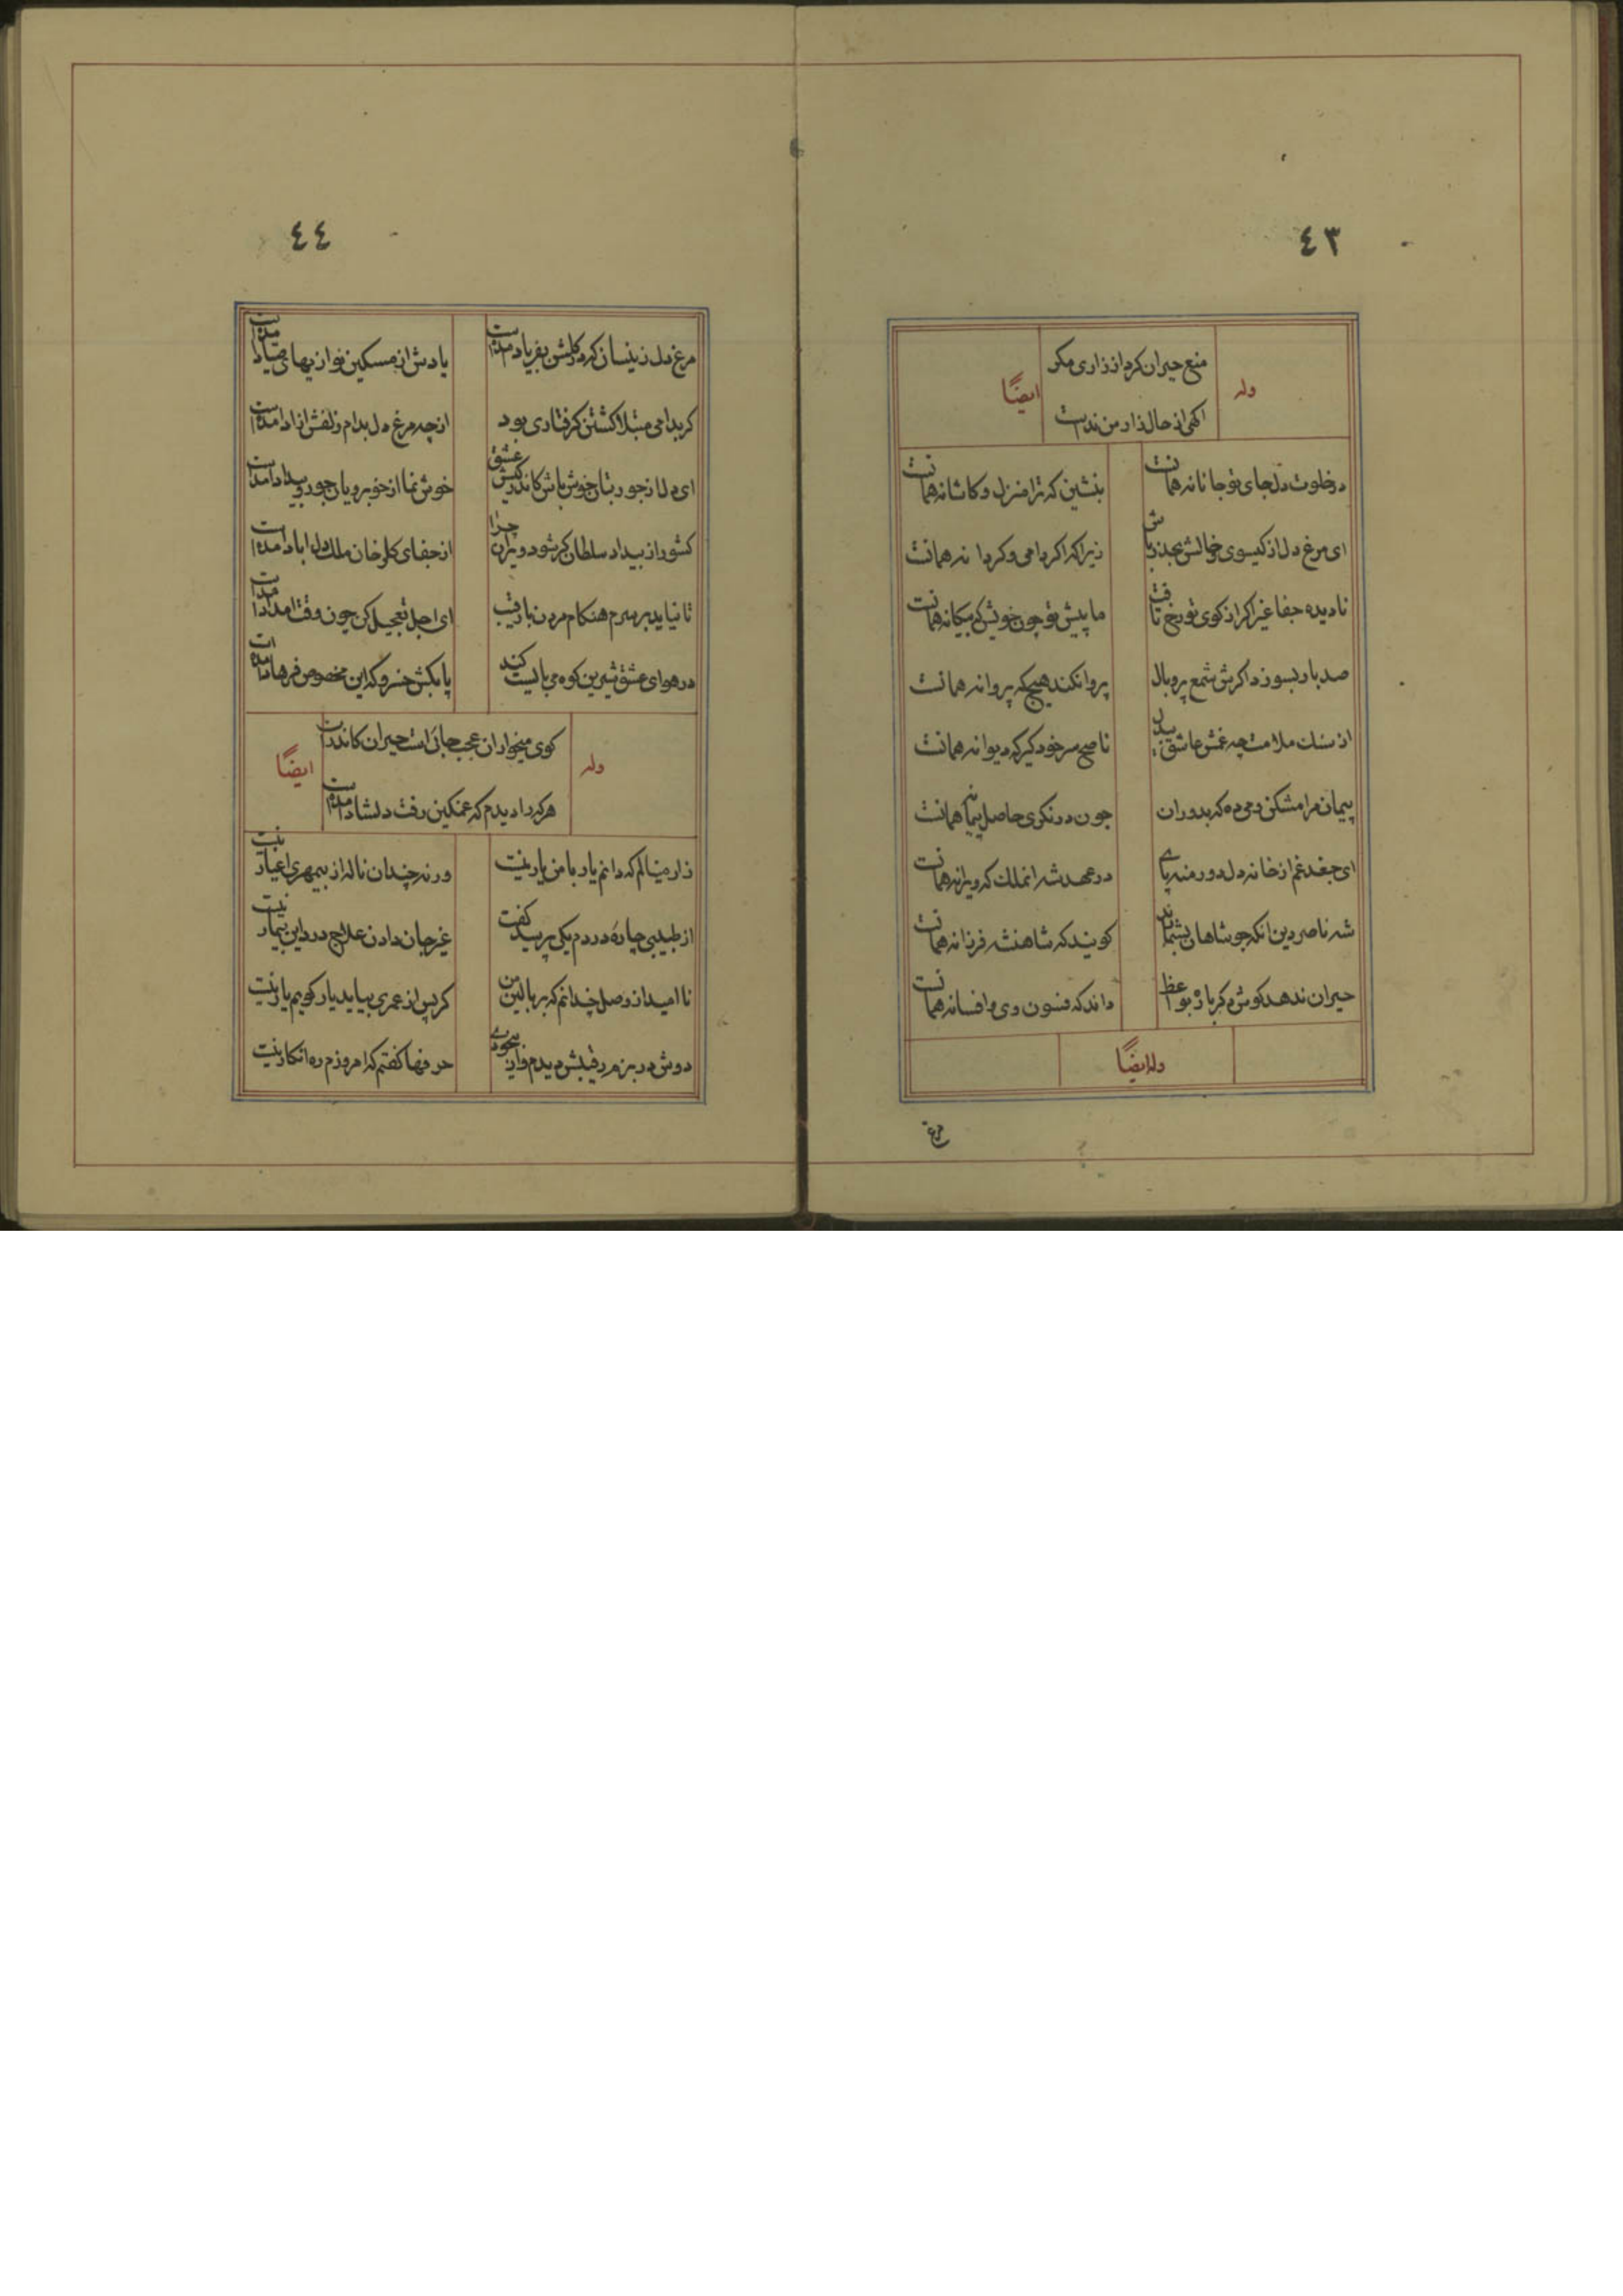 ٤٣
منع حیران کرد از زاری مکر
وله
ایضاً
اکهی از حال زار من نداشت
در خلوت دل جای تو جانانه همانست
بنشین که ترا منزل و کاشانه همانست
ای مرغ دل از کیسوی خالش بحذر باش
زیرا که اکر دامی و کر دانه همانست
نادیده جفا غیر اکر از کوی تو رخ تافت
ما پیش تو چون خویش که بیکانه همانست
صد بار بسوزد اکرش شمع پر و بال
پروا نکند هیچ که پروانه همانست
از سنك ملامت چه غمش عاشق بیدل
ناصح سر خود کیر که دیوانه همانست
پیمان مرا مشکن و می ده که بدوران
چون درنکری حاصل پیمانه همانست
ای جغد غم از خانه دل دور منه پای
در عهد شه انملك که ویرانه همانست
شه ناصر دین انکه چو شاهان بشمارند
کویند که شاهنشه فرزانه همانست
حیران ندهد کوش دکر باره بواعظ
داند که فسون وی و افسانه همانست
وله ایضاً
مرغ
٤٤
مرغ دل زینسان که در کلشن بفریاد امده است
یادش از مسکین نوازیهای صیاد امده است
کر بدامی مبتلا کشتن کرفتاری بود
از چه مرغ دل بدام زلفش ازاد امده است
ای دل از جور بتان خوش باش کاندر کیش عشق
خوش نما از خوبرویان جور و بیداد امده است
کشور از بیداد سلطان کر شود ویران چرا
از جفای کلرخان ملك دل اباد امده است
تا نیاید بر سرم هنکام مردن با رقیب
ای اجل تعجیل کن چون وقت امداد امده است
در هوای عشق شیرین کوه می بایست کند
پا بکش خسرو که این مخصوص فرهاد امده است
کوی میخواران عجب جائی است حیران کاندر ان
وله
ایضاً
هر که را دیدم که غمکین رفت دلشاد امده است
زار مینالم که دانم یار با من یار نیست
ورنه چندان ناله از بیمهری اغیار نیست
از طبیبی چاره دردم یکی پرسید کفت
غیر جان دادن علاج درد این بیمار نیست
ناامید از وصل چندانم که بر بالین من
کر پس از عمری بیاید یار کویم یار نیست
دوش در بزم رقیبش دیدم و از بیخودی
حرفها کفتم که امروزم ره انکار نیست